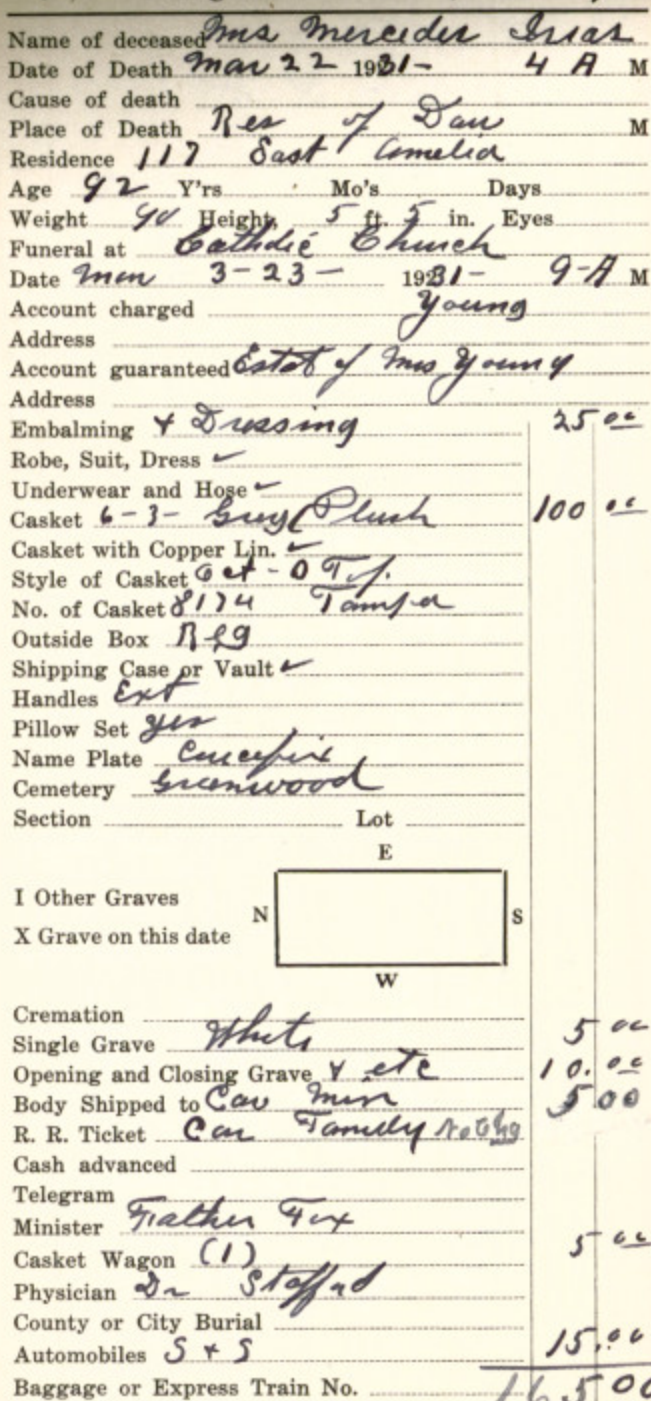 Name of deceased Mrs Mercedes Irias
Date of Death Mar 22 1931- 4 A M
Cause of death
Place of Death Res of Dau M
Residence 117 East Amelia
Age 92 Y'rs Mo's Days
Weight 90 Height, 5 ft. 5 in. Eyes
Funeral at Catholic Church
Date Mon 3-23- 1931- 9-A M
Account charged Young
Address
Account guaranteed Estat of Mrs Young
Address
Embalming & Dressing 25 00
Robe, Suit, Dress ✓
Underwear and Hose ✓
Casket 6-3- Grey Plush 100 00
Casket with Copper Lin. ✓
Style of Casket Oct-O Top.
No. of Casket 8174 Tampa
Outside Box Reg
Shipping Case or Vault ✓
Handles Ext
Pillow Set yes
Name Plate Crucifix
Cemetery Greenwood
Section Lot
E
I Other Graves
N S
X Grave on this date
W
Cremation
Single Grave White 5 00
Opening and Closing Grave & etc 10.00
Body Shipped to Car Min 5 00
R. R. Ticket Car Family No Chg
Cash advanced
Telegram
Minister Father Fox
Casket Wagon (1) 5 00
Physician Dr Staffod
County or City Burial
Automobiles S + S 15.00
Baggage or Express Train No. 165 00